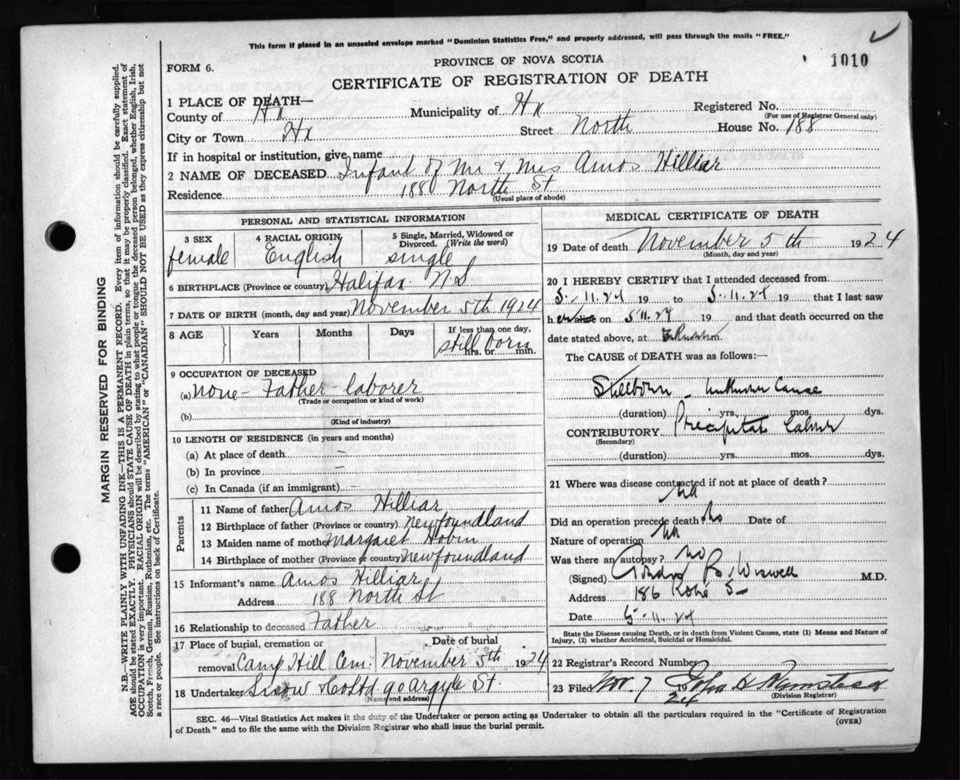 This form if placed in an unsealed envelope marked "Dominion Statistics Free," and properly addressed, will pass through the mails "FREE."
PROVINCE OF NOVA SCOTIA
1010
FORM 6.
CERTIFICATE OF REGISTRATION OF DEATH
1 PLACE OF DEATH—
County of Hx Municipality of Hx Registered No.
(For use of Registrar General only)
City or Town Hx Street North House No. 188
If in hospital or institution, give name
2 NAME OF DECEASED Infant of Mr & Mrs Amos Hilliar
Residence 188 North St.
(Usual place of abode)
PERSONAL AND STATISTICAL INFORMATION
3 SEX female
4 RACIAL ORIGIN English
5 Single, Married, Widowed or Divorced. (Write the word) single
6 BIRTHPLACE (Province or country) Halifax N.S
7 DATE OF BIRTH (month, day and year) November 5th 1924
8 AGE Years Months Days If less than one day, hrs. or min. still born
9 OCCUPATION OF DECEASED
(a) none - Father laborer
(Trade or occupation or kind of work)
(b)
(Kind of industry)
10 LENGTH OF RESIDENCE (in years and months)
(a) At place of death –
(b) In province –
(c) In Canada (if an immigrant) –
Parents
11 Name of father Amos Hilliar
12 Birthplace of father (Province or country) Newfoundland
13 Maiden name of mother Margaret Hobin
14 Birthplace of mother (Province or country) Newfoundland
15 Informant's name Amos Hilliar
Address 188 North St
16 Relationship to deceased Father
17 Place of burial, cremation or removal Date of burial
Camp Hill Cem. November 5th 1924
18 Undertaker Snow & Co Ltd 90 Argyle St.
(Name and address)
MEDICAL CERTIFICATE OF DEATH
19 Date of death November 5th 1924
(Month, day and year)
20 I HEREBY CERTIFY that I attended deceased from
5.11.24 19 to 5.11.24 19 that I last saw
h on 5 11.24 19 and that death occurred on
date stated above, at m.
The CAUSE of DEATH was as follows:—
Stillborn - unknown cause
(duration) yrs. mos. dys.
CONTRIBUTORY Precipitate Labour
(Secondary)
(duration) yrs. mos. dys.
21 Where was disease contracted if not at place of death?
Did an operation precede death no Date of
Nature of operation
Was there an autopsy? no
(Signed) B. Wiswell M.D.
Address 186 St
Date 5.11.24
State the Disease causing Death, or in death from Violent Causes, state (1) Means and Nature of
Injury, (2) whether Accidental, Suicidal or Homicidal.
22 Registrar's Record Number
23 Filed Nov. 7 1924
(Division Registrar)
SEC. 46—Vital Statistics Act makes it the duty of the Undertaker or person acting as Undertaker to obtain all the particulars required in the "Certificate of Registration
of Death" and to file the same with the Division Registrar who shall issue the burial permit.
(OVER)
MARGIN RESERVED FOR BINDING
N.B.—WRITE PLAINLY WITH UNFADING INK—THIS IS A PERMANENT RECORD. Every item of information should be carefully supplied.
AGE should be stated EXACTLY. PHYSICIANS should STATE CAUSE OF DEATH in plain terms, so that it may be properly classified. Exact statement of
OCCUPATION is very important. RACIAL ORIGIN will be described by stating to what people or tongue the deceased person belonged, whether English, Irish,
Scotch, French, German, Russian, Ruthenian, etc. The terms "AMERICAN" or "CANADIAN" SHOULD NOT BE USED as they express citizenship but not
a race or people. See instructions on back of Certificate.